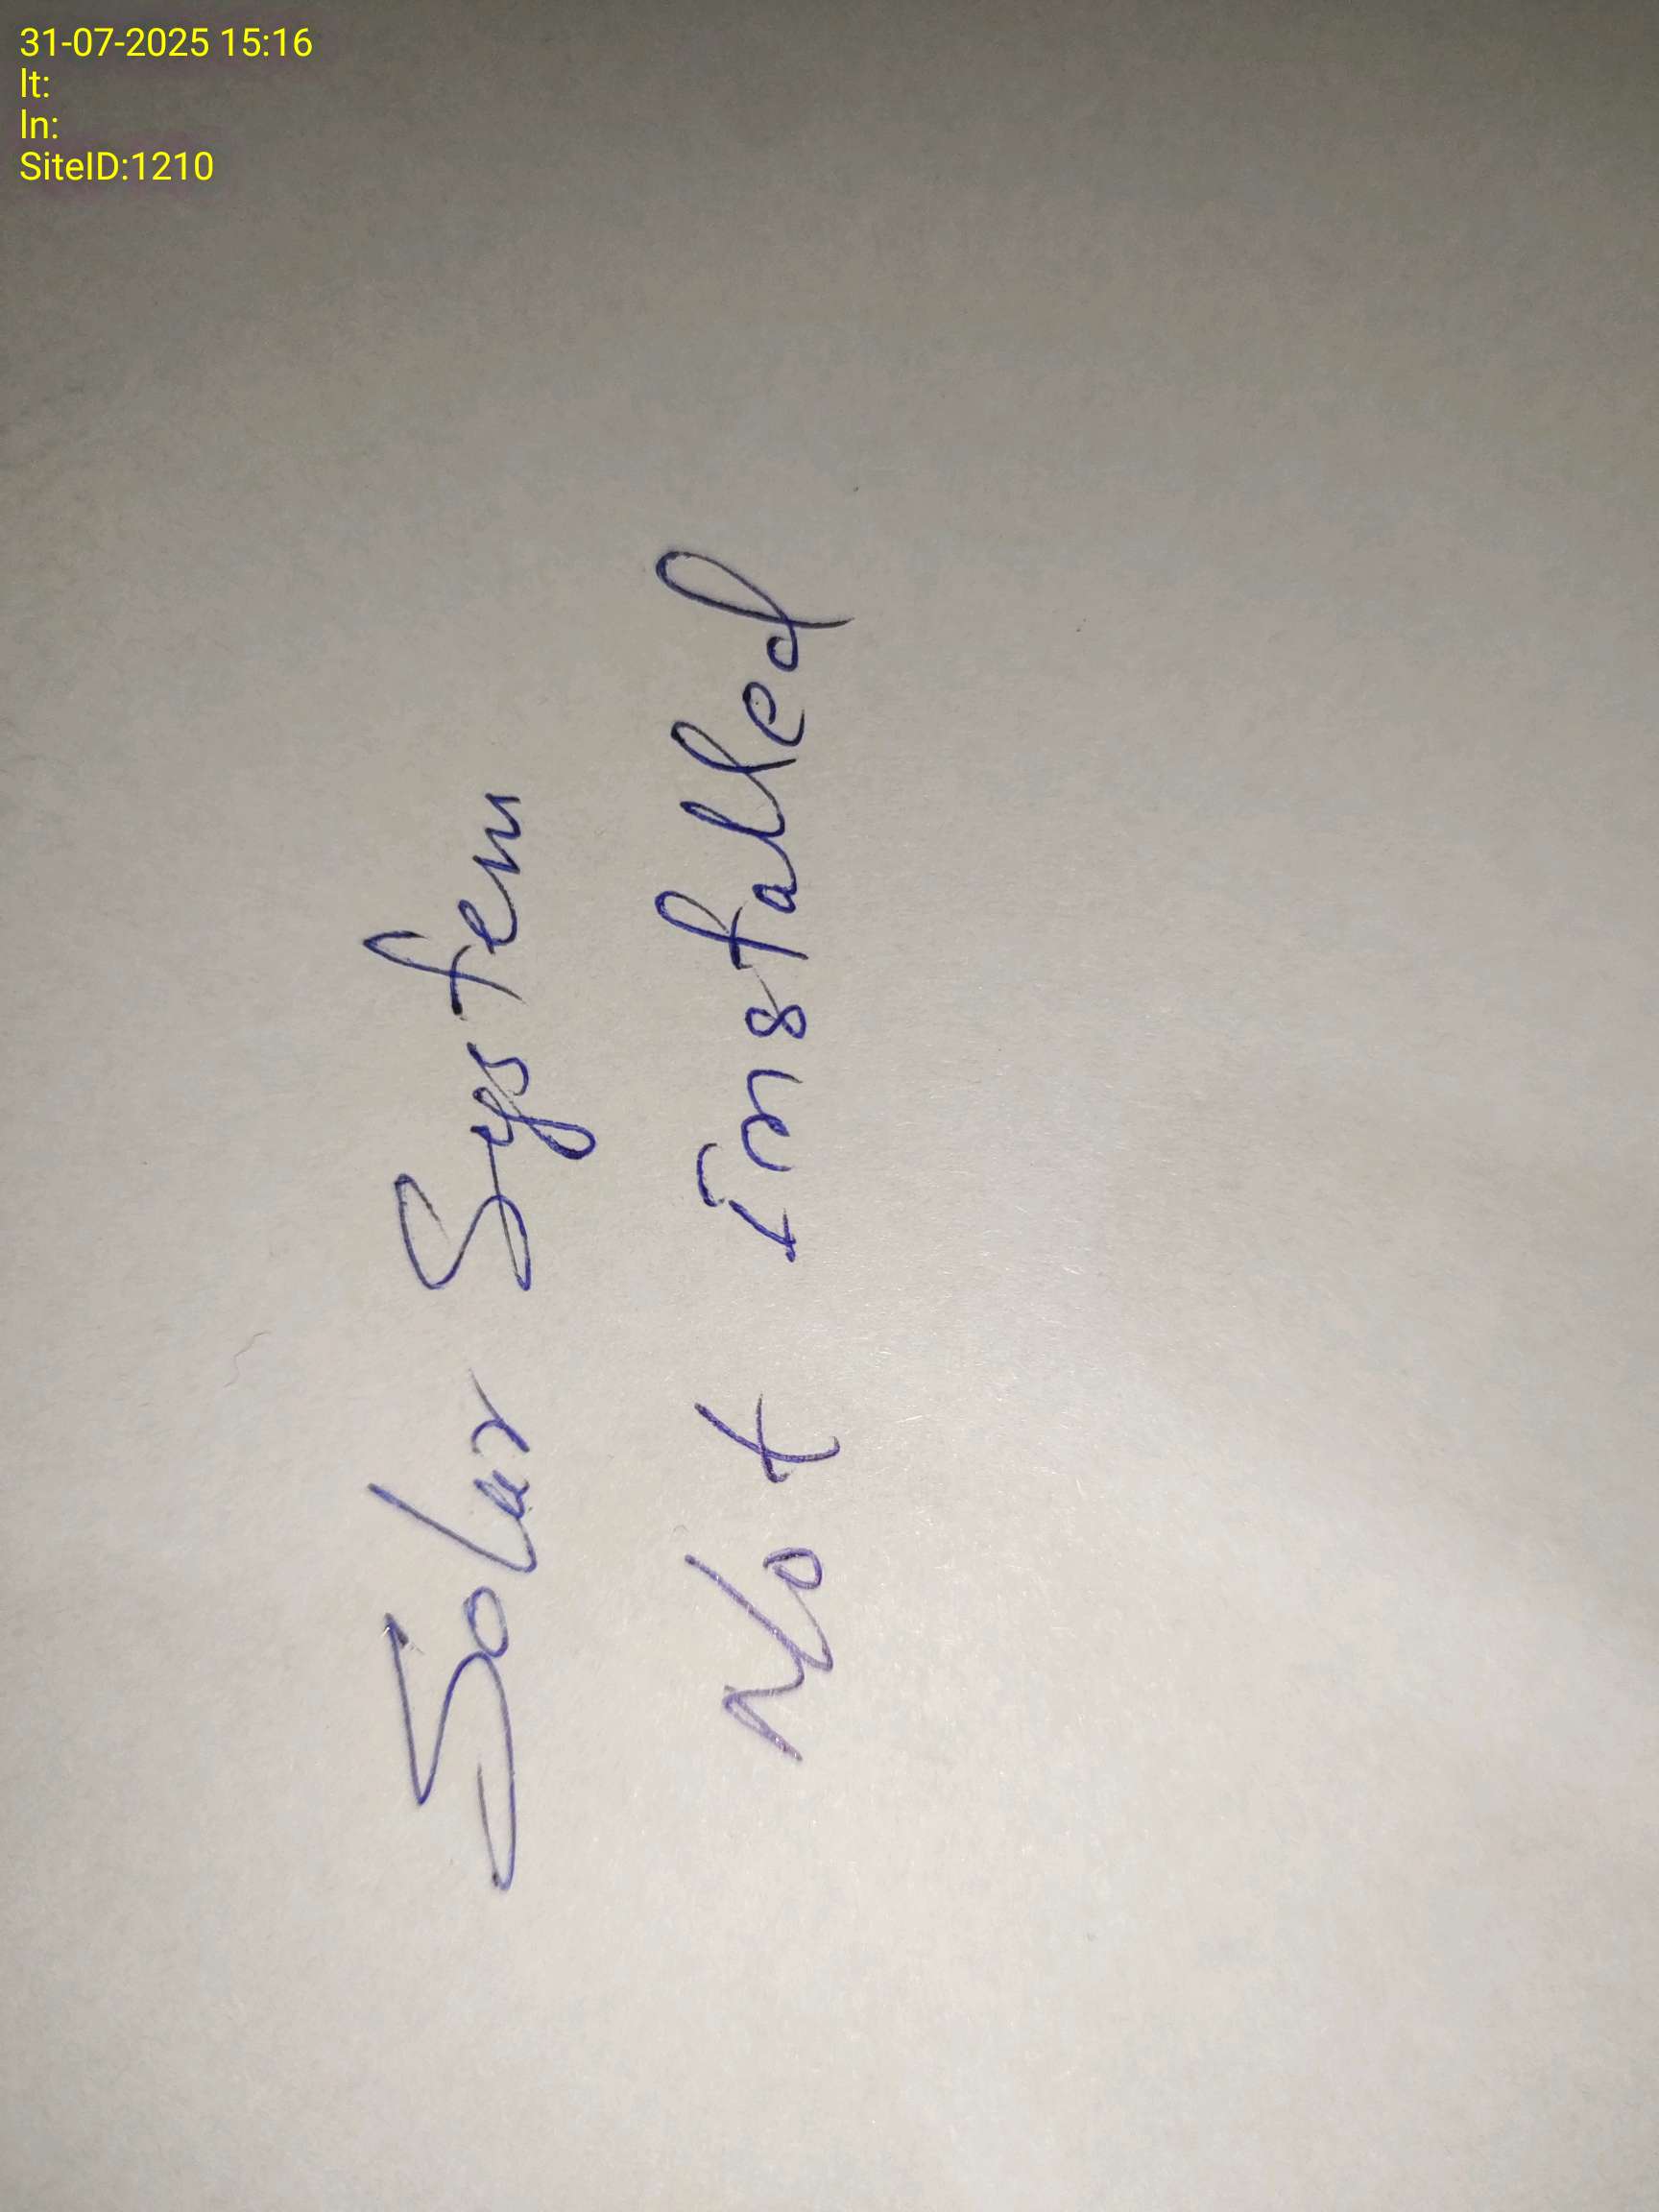 31-07-2025 15:16
lt:
ln:
SiteID:1210
Solar System
Not Installed